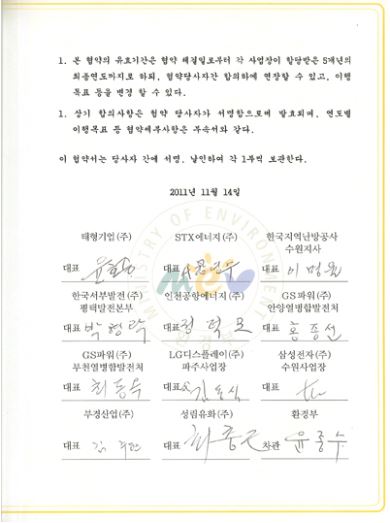 1. 본 협약의 유효기간은 협약 체결일로부터 각 사업장이 할당받은 5개년의
최종연도까지로 하되, 협약당사자간 합의하에 연장할 수 있고, 이행
목표 등을 변경 할 수 있다.
1. 상기 합의사항은 협약 당사자가 서명함으로써 발효되며, 연도별
이행목표 등 협약세부사항은 부속서와 같다.
이 협약서는 당사자 간에 서명, 날인하여 각 1부씩 보관한다.
2011년 11월 14일
태형기업(주) STX에너지(주) 한국지역난방공사
수원지사
대표 대표 대표
한국서부발전(주) 인천공항에너지(주) GS파워(주)
평택발전본부 안양열병합발전처
대표 박형락 대표 대표 홍종선
GS파워(주) LG디스플레이(주) 삼성전자(주)
부천열병합발전처 파주사업장 수원사업장
대표 최동욱 대표 대표
부경산업(주) 성림유화(주) 환경부
대표 대표 차관 윤종수
MINISTRY OF ENVIRONMENT
mev